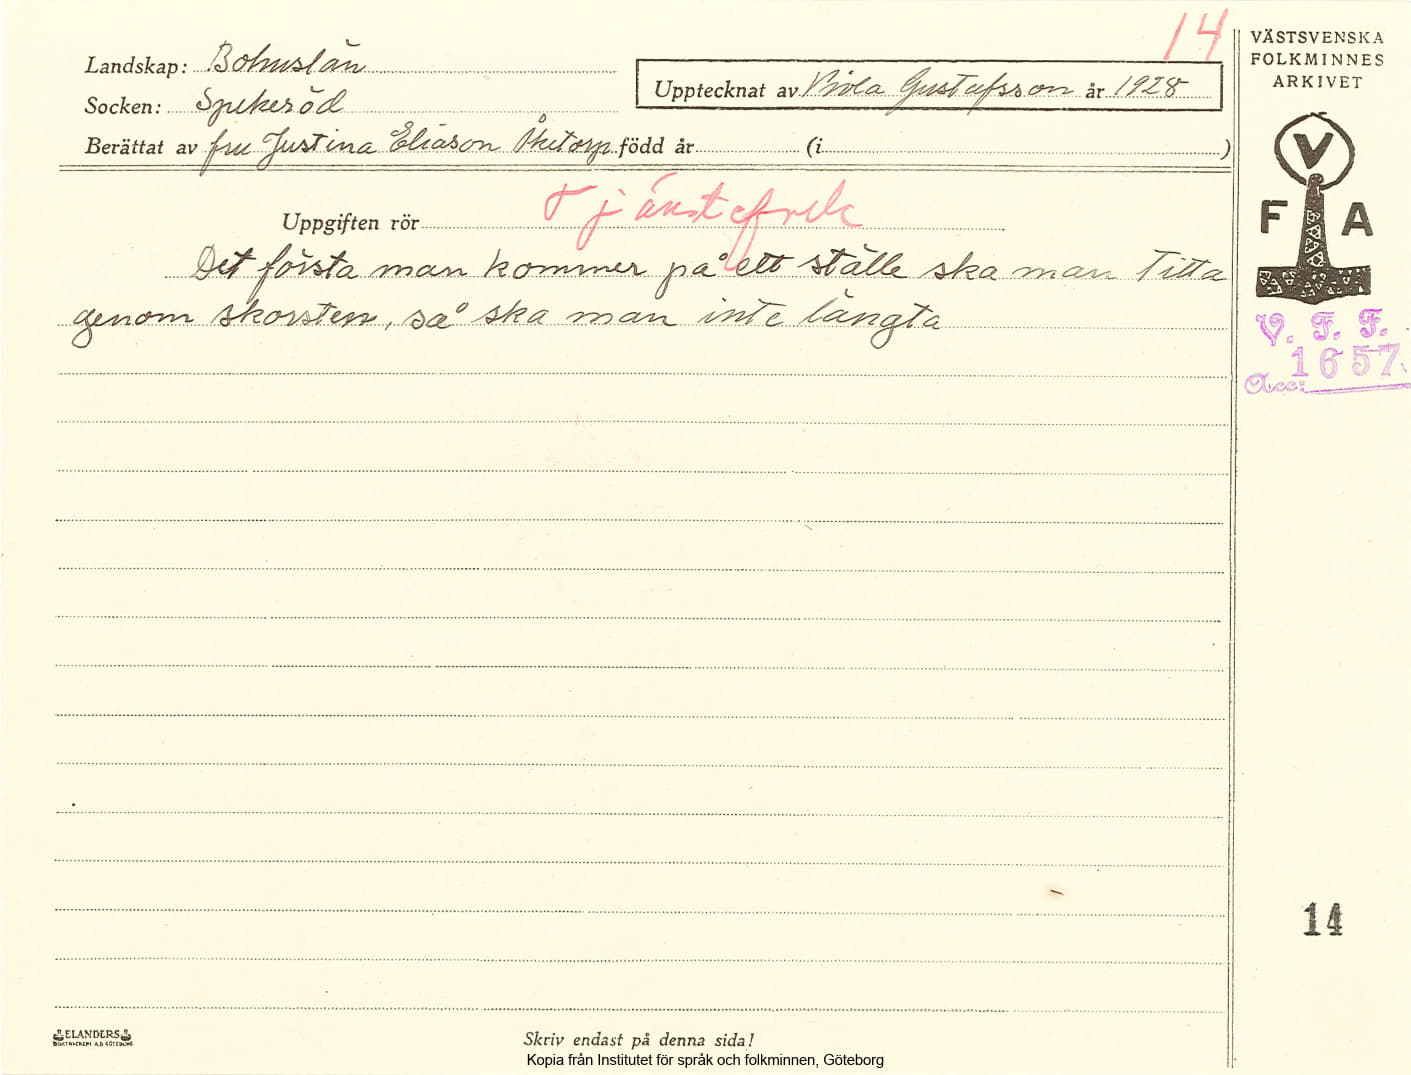 14
Landskap: Bohuslän
Socken: Spekeröd
Upptecknat av Viola Gustafsson år 1928
Berättat av fru Justina Eliason Åketorp född år (i )
Uppgiften rör Tjänstefolk
Det första man kommer på ett ställe ska man titta
genom skorsten, så ska man inte längta
VÄSTSVENSKA
FOLKMINNES
ARKIVET
V
F A
V. F. F.
1657
Acc:
14
ELANDERS
BOKTRYCKERI A.B. GÖTEBORG
Skriv endast på denna sida!
Kopia från Institutet för språk och folkminnen, Göteborg